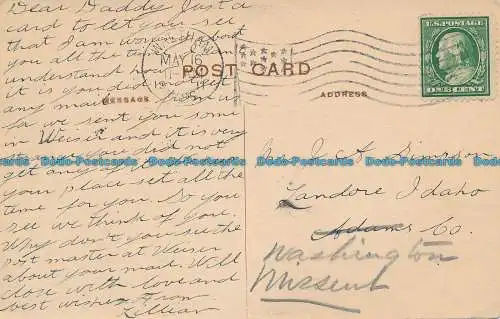 Dear Daddy Just a
card to let you see
that I am worrying about
you all the time
understand how
it is you did not get
any mail from us
far we sent you some
in Weiser and it is very
you did not
get any of
your place set all the
time for you. So you
see we think of you.
Why don't you see the
post master at Weiser
about your mail. Will
close with love and
best wishes From
Lillian
MAY 16
POST CARD
MESSAGE
ADDRESS
U.S. POSTAGE
ONE CENT
Simpson
Landore Idaho
Adams Co.
Washington
Missent
Dodo-Postcards Dodo-Postcards Dodo-Postcards Dodo-Postcards Dodo-Postcards
Dodo-Postcards Dodo-Postcards Dodo-Postcards Dodo-Postcards Dodo-Postcards